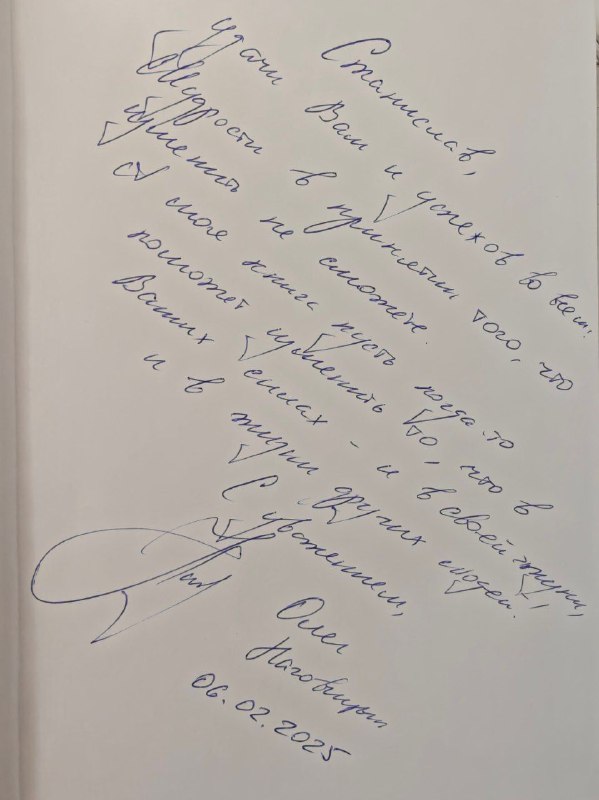 Станислав,
удачи Вам и успехов во всем!
Мудрости в принятии того, что
изменить не сможете.
А моя книга пусть когда-то
поможет изменить то, что в
Ваших силах - и в своей жизни,
и в жизни других людей!
С уважением,
Олег
06.02.2025